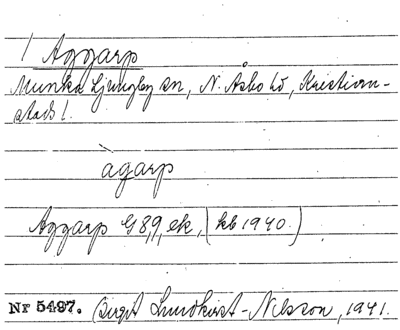 / Aggarp
Munka Ljungby sn, N. Åsbo hd, Kristian-
stads l.
àgarp
Aggarp G 89, ek, (kb 1940.)
Nr 5497. Birgit Lundkvist-Nilsson, 1941.